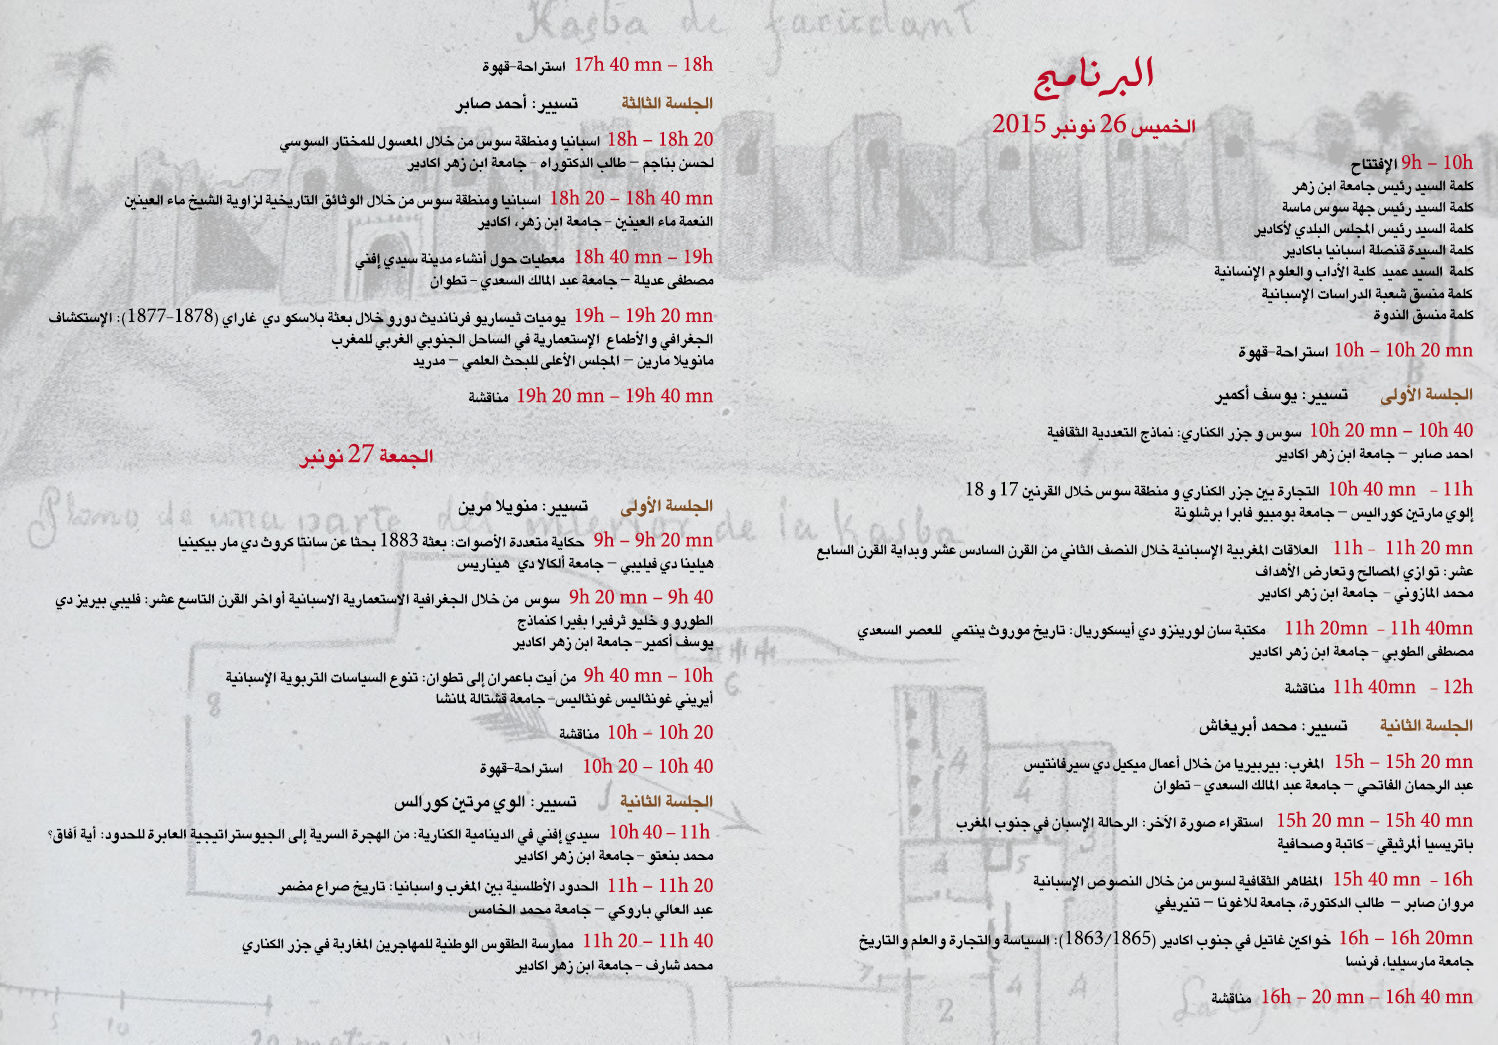 Kasba de Tarudant
البرنامج
الخميس 26 نونبر 2015
9h – 10h الإفتتاح
كلمة السيد رئيس جامعة ابن زهر
كلمة السيد رئيس جهة سوس ماسة
كلمة السيد رئيس المجلس البلدي لأكادير
كلمة السيدة قنصلة اسبانيا باكادير
كلمة السيد عميد كلية الأداب والعلوم الإنسانية
كلمة منسق شعبة الدراسات الإسبانية
كلمة منسق الندوة
10h – 10h 20 mn استراحة-قهوة
الجلسة الأولى تسيير: يوسف أكمير
10h 20 mn – 10h 40 سوس و جزر الكناري: نماذج التعددية الثقافية
احمد صابر – جامعة ابن زهر اكادير
10h 40 mn - 11h التجارة بين جزر الكناري و منطقة سوس خلال القرنين 17 و 18
إلوي مارتين كوراليس – جامعة بومبيو فابرا برشلونة
11h - 11h 20 mn العلاقات المغربية الإسبانية خلال النصف الثاني من القرن السادس عشر وبداية القرن السابع
عشر: توازي المصالح وتعارض الأهداف
محمد المازوني - جامعة ابن زهر اكادير
11h 20mn - 11h 40mn مكتبة سان لورينزو دي أيسكوريال: تاريخ موروث ينتمي للعصر السعدي
مصطفى الطوبي - جامعة ابن زهر اكادير
11h 40mn - 12h مناقشة
الجلسة الثانية تسيير: محمد أبريغاش
15h – 15h 20 mn المغرب: بيربيريا من خلال أعمال ميكيل دي سيرفانتيس
عبد الرحمان الفاتحي – جامعة عبد المالك السعدي - تطوان
15h 20 mn – 15h 40 mn استقراء صورة الآخر: الرحالة الإسبان في جنوب المغرب
باتريسيا ألمرثيقي - كاتبة وصحافية
15h 40 mn - 16h المظاهر الثقافية لسوس من خلال النصوص الإسبانية
مروان صابر – طالب الدكتورة، جامعة للاغونا – تنيريفي
16h – 16h 20mn خواكين غاتيل في جنوب اكادير (1863/1865): السياسة والتجارة والعلم والتاريخ
جامعة مارسيليا، فرنسا
16h – 20 mn – 16h 40 mn مناقشة
17h 40 mn – 18h استراحة-قهوة
الجلسة الثالثة تسيير: أحمد صابر
18h – 18h 20 اسبانيا ومنطقة سوس من خلال المعسول للمختار السوسي
لحسن بناجم – طالب الدكتوراه - جامعة ابن زهر اكادير
18h 20 – 18h 40 mn اسبانيا ومنطقة سوس من خلال الوثائق التاريخية لزاوية الشيخ ماء العينين
النعمة ماء العينين - جامعة ابن زهر، اكادير
18h 40 mn – 19h معطيات حول أنشاء مدينة سيدي إفني
مصطفى عديلة – جامعة عبد المالك السعدي - تطوان
19h – 19h 20 mn يوميات ثيساريو فرنانديث دورو خلال بعثة بلاسكو دي غاراي (1878-1877): الإستكشاف
الجغرافي والأطماع الإستعمارية في الساحل الجنوبي الغربي للمغرب
مانويلا مارين – المجلس الأعلى للبحث العلمي – مدريد
19h 20 mn – 19h 40 mn مناقشة
الجمعة 27 نونبر
الجلسة الأولى تسيير: منويلا مرين
9h – 9h 20 mn حكاية متعددة الأصوات: بعثة 1883 بحثا عن سانتا كروث دي مار بيكينيا
هيلينا دي فيليبي – جامعة ألكالا دي هيناريس
9h 20 mn – 9h 40 سوس من خلال الجغرافية الاستعمارية الاسبانية أواخر القرن التاسع عشر: فليبي بيريز دي
الطورو و خليو ثرفيرا بفيرا كنماذج
يوسف أكمير- جامعة ابن زهر اكادير
9h 40 mn – 10h من أيت باعمران إلى تطوان: تنوع السياسات التربوية الإسبانية
أيريني غونثاليس غونثاليس- جامعة قشتالة لمانشا
10h – 10h 20 مناقشة
10h 20 – 10h 40 استراحة-قهوة
الجلسة الثانية تسيير: الوي مرتين كورالس
10h 40 – 11h سيدي إفني في الدينامية الكنارية: من الهجرة السرية إلى الجيوستراتيجية العابرة للحدود: أية أفاق؟
محمد بنعتو - جامعة ابن زهر اكادير
11h – 11h 20 الحدود الأطلسية بين المغرب واسبانيا: تاريخ صراع مضمر
عبد العالي باروكي – جامعة محمد الخامس
11h 20 – 11h 40 ممارسة الطقوس الوطنية للمهاجرين المغاربة في جزر الكناري
محمد شارف - جامعة ابن زهر اكادير
Plano de una parte del interior de la Kasba
B
8
6
4
4
3
4
5
7
4
4
2
5
10
20 metros